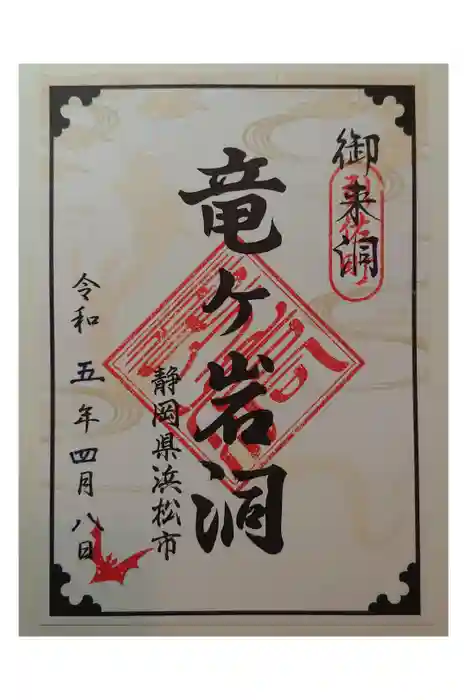 御来洞
竜ヶ岩洞
静岡県浜松市
令和五年四月八日